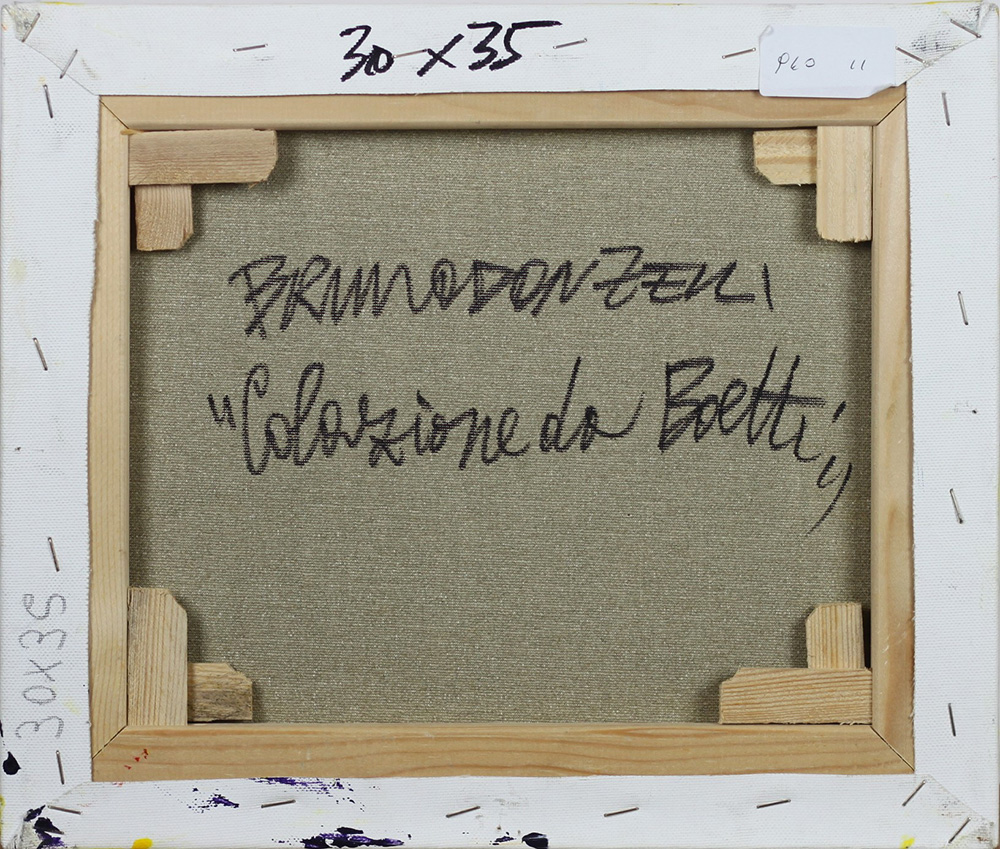 30 x 35
BRUNO DONZELLI
"Colazione da Boetti"
30X35